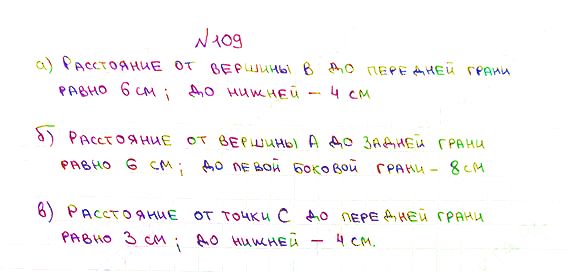 №109
а) Расстояние от вершины В до передней грани
равно 6 см; до нижней – 4 см
б) Расстояние от вершины А до задней грани
равно 6 см; до левой боковой грани – 8 см
в) Расстояние от точки С до передней грани
равно 3 см; до нижней – 4 см.